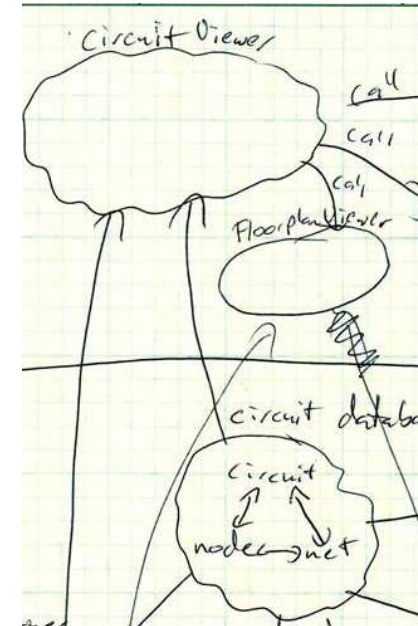 Circuit Viewer
call
call
call
Floorplan Viewer
circuit databa
circuit
node net